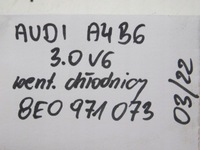 AUDI A4 B6
3.0 V6
went. chłodnicy
8E0 971 073
03/22